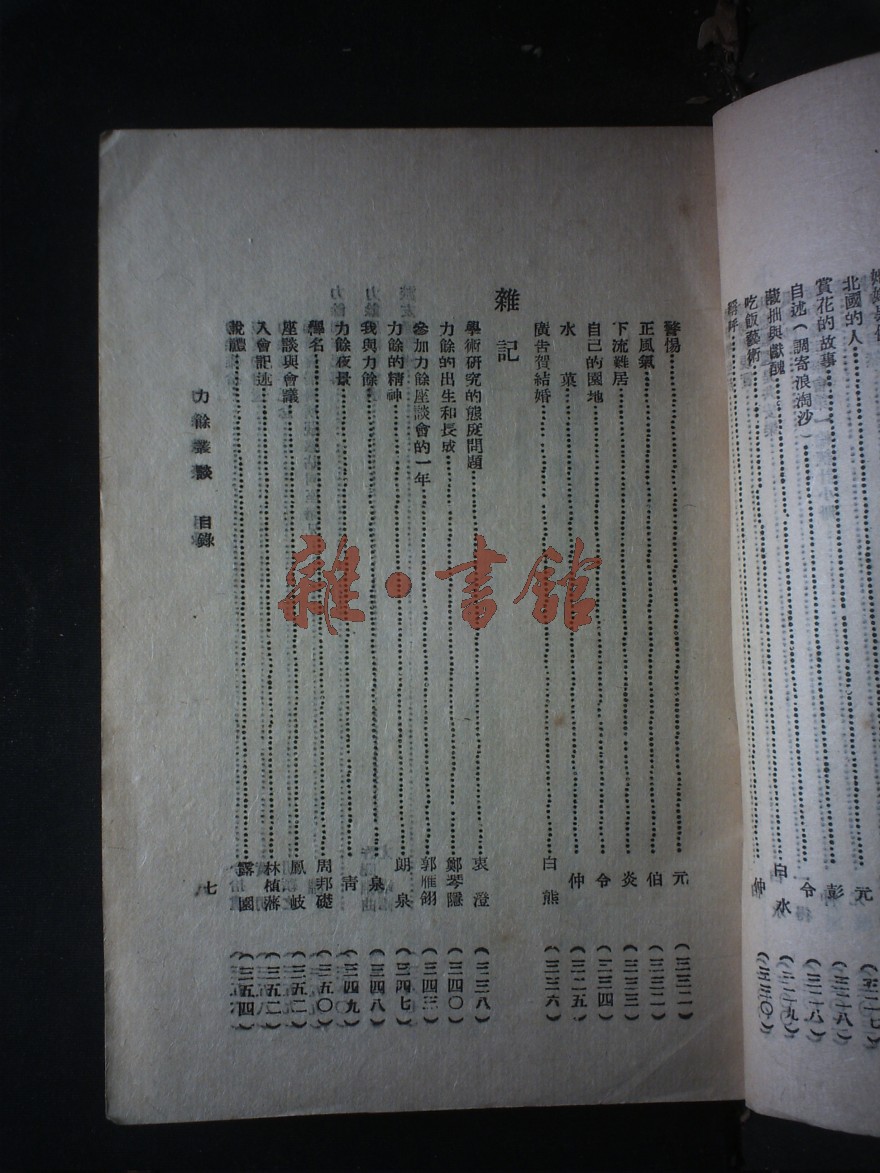 北國的人 元
賞花的故事 彭
自述(調寄浪淘沙) 令
藏拙與獻醜 白水
吃飯藝術 仲
警惕 元 (三三二)
正風氣 伯 (三三二)
下流難居 炎 (三三三)
自己的園地 令 (三三四)
水菓 仲
廣告賀結婚 白熊 (三三六)
雜記
學術研究的態度問題 衷澄 (三三八)
力餘的出生和長成 鄭琴隱 (三四〇)
參加力餘座談會的一年 郭雁翎 (三四三)
力餘的精神 朗泉 (三四七)
我與力餘 泉 (三四八)
力餘夜景 青 (三四九)
釋名 周邦礎 (三五〇)
座談與會議 鳳岐 (三五二)
入會記述 林植蕃 (三五二)
說禮 露園 (三五四)
力餘叢談 目錄
七
雜·書館